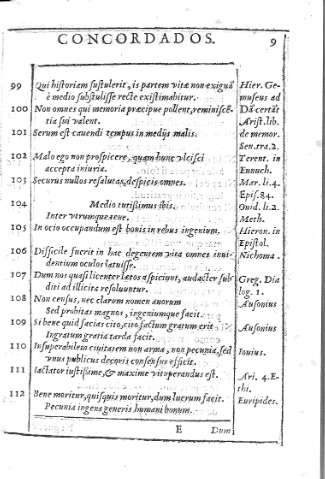 CONCORDADOS. 9
99 Qui historiam sustulerit, is partem vitæ non exiguã Hier. Ge-
è medio substulisse recte existimabitur. museus ad
100 Non omnes qui memoria præcipue pollent, reminiscẽ- Dã
tia sui valent. Arist. lib.
101 Serum est cavendi tempus in medijs malis. de memor.
Sen. tra. 2.
102 Malo ego nos prospicere, quam hunc vlcisci Terent. in
accepta iniuria. Eunuch.
103 Securus nullos despicis omnes. Mar. li. 4.
Epis. 84.
104 Medio tutissimus ibis. Ouid. li. 2.
Inter utrumque Meth.
105 In ocio occupandum est bonis in rebus ingenium. Hieron. in
Epistol.
106 Difficile fuerit in hac degentem vita omnes inui- Nichoma.
dentium oculos latuisse.
107 Dum nos quasi licenter lætos aspiciunt, audacter sub- Greg. Dia
diti ad illicita resoluuntur. log. 1.
108 Non census, nec clarum nomen auorum Ausonius
Sed probitas magnos, ingeniumque facit.
109 Si bene quid facias cito, cito factum gratum erit Ausonius
Ingratum gratia tarda facit.
110 Insuperabilem ciuitatem non arma, non pecunia, sed Iouius.
vnus publicus consensus efficit.
111 Iactator iustissime, & maxime est. Ari. 4. E-
thi.
112 Bene moritur, quisquis moritur, dum lucrum facit. Euripides.
Pecunia ingens generis humani bonum.
E Dum